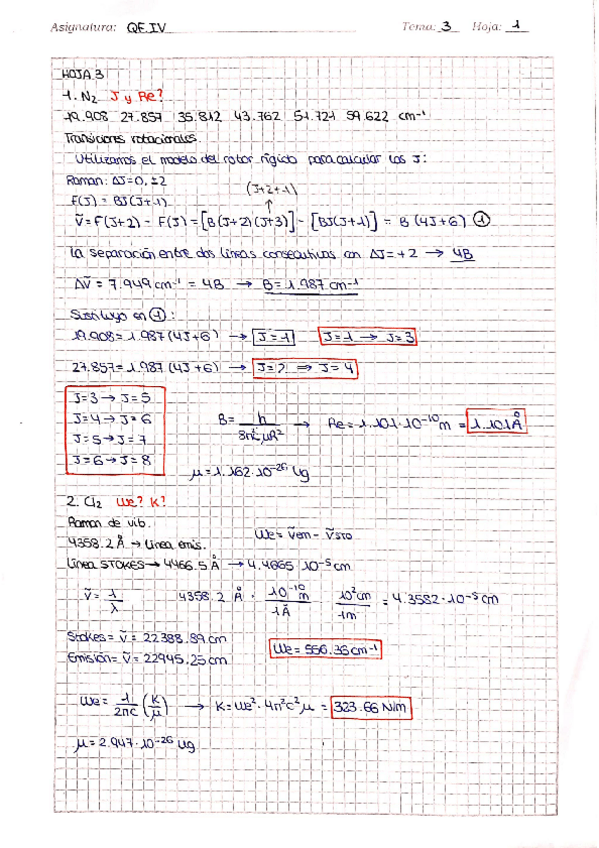 Asignatura: QF.IV Tema: 3 Hoja: 1
HOJA 3
1. N2 J y Re?
19.908 27.857 35.812 43.762 51.721 59.622 cm-1
Transiciones rotacionales.
Utilizamos el modelo del rotor rígido para calcular las J:
Raman: ΔJ=0, ±2
(J+2+1)
F(J) = BJ(J+1)
↑
ṽ = F(J+2) - F(J) = [B(J+2)(J+3)] - [BJ(J+1)] = B(4J+6) ①
La separación entre dos líneas consecutivas con ΔJ=+2 → 4B
Δṽ = 7.949 cm-1 = 4B → B=1.987 cm-1
Sustituyo en ①:
19.908=1.987(4J+6) → J=1 J=1 → J=3
27.857=1.987(4J+6) → J=2 ⇒ J=4
J=3 → J=5
J=4 → J=6
J=5 → J=7
J=6 → J=8
B= h / 8π²μR² → Re=1.101·10-10 m = 1.101Å
μ=1.162·10-26 kg
2. Cl2 We? K?
Raman de vib.
We= ṽem - ṽsto
4358.2 Å → Línea emis.
Línea STOKES → 4466.5 Å → 4.4665 10-5 cm
ṽ= 1/λ 4358.2 Å · 10-10 m / 1Å · 10² cm / 1m = 4.3582·10-5 cm
Stokes= ṽ = 22388.89 cm
Emisión= ṽ= 22945.25 cm
We= 556.36 cm-1
We= 1/2πc (K/μ) → K= We²·4π²c²μ = 323.66 N/m
μ=2.947·10-26 kg